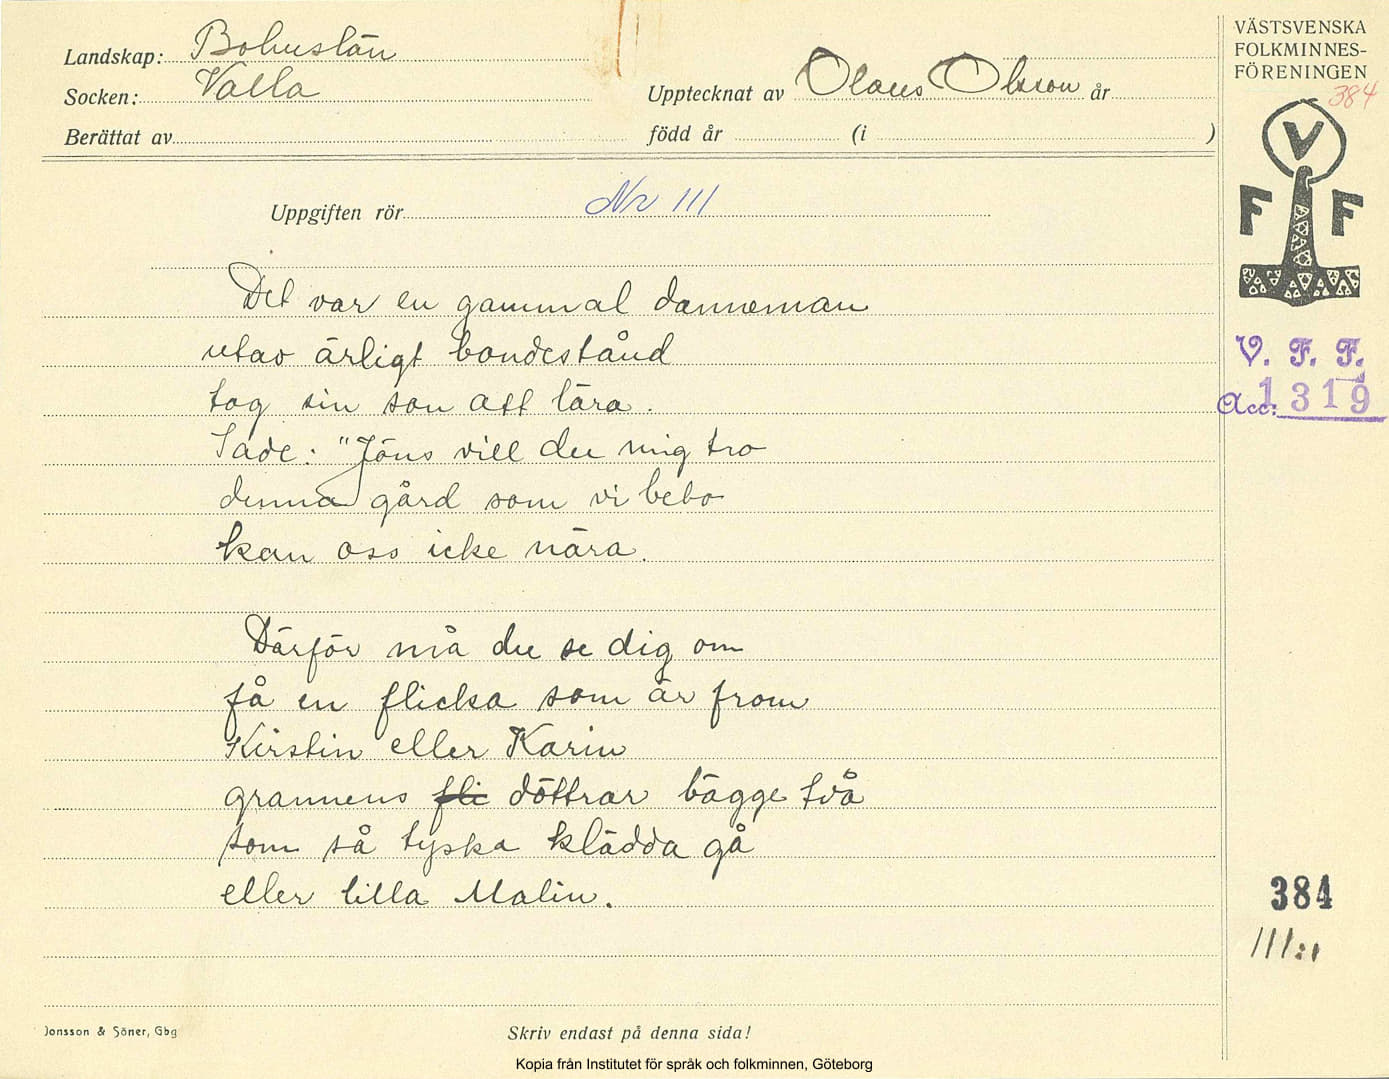 Landskap: Bohuslän
Socken: Valla
Upptecknat av Olaus Olsson år
Berättat av
född år (i )
VÄSTSVENSKA
FOLKMINNES-
FÖRENINGEN
384
V
F F
V. F. F.
Acc: 1319
Uppgiften rör Nr 111
Det var en gammal danneman
utav ärligt bondestånd
tog sin son att lära.
Sade: "Jöns vill du mig tro
denna gård som vi bebo
kan oss icke nära.
Därför må du se dig om
få en flicka som är from
Kirstin eller Karin
grannens fli döttrar bägge två
som så tyska klädda gå
eller lilla Malin.
384
111:1
Jonsson & Söner, Gbg
Skriv endast på denna sida!
Kopia från Institutet för språk och folkminnen, Göteborg